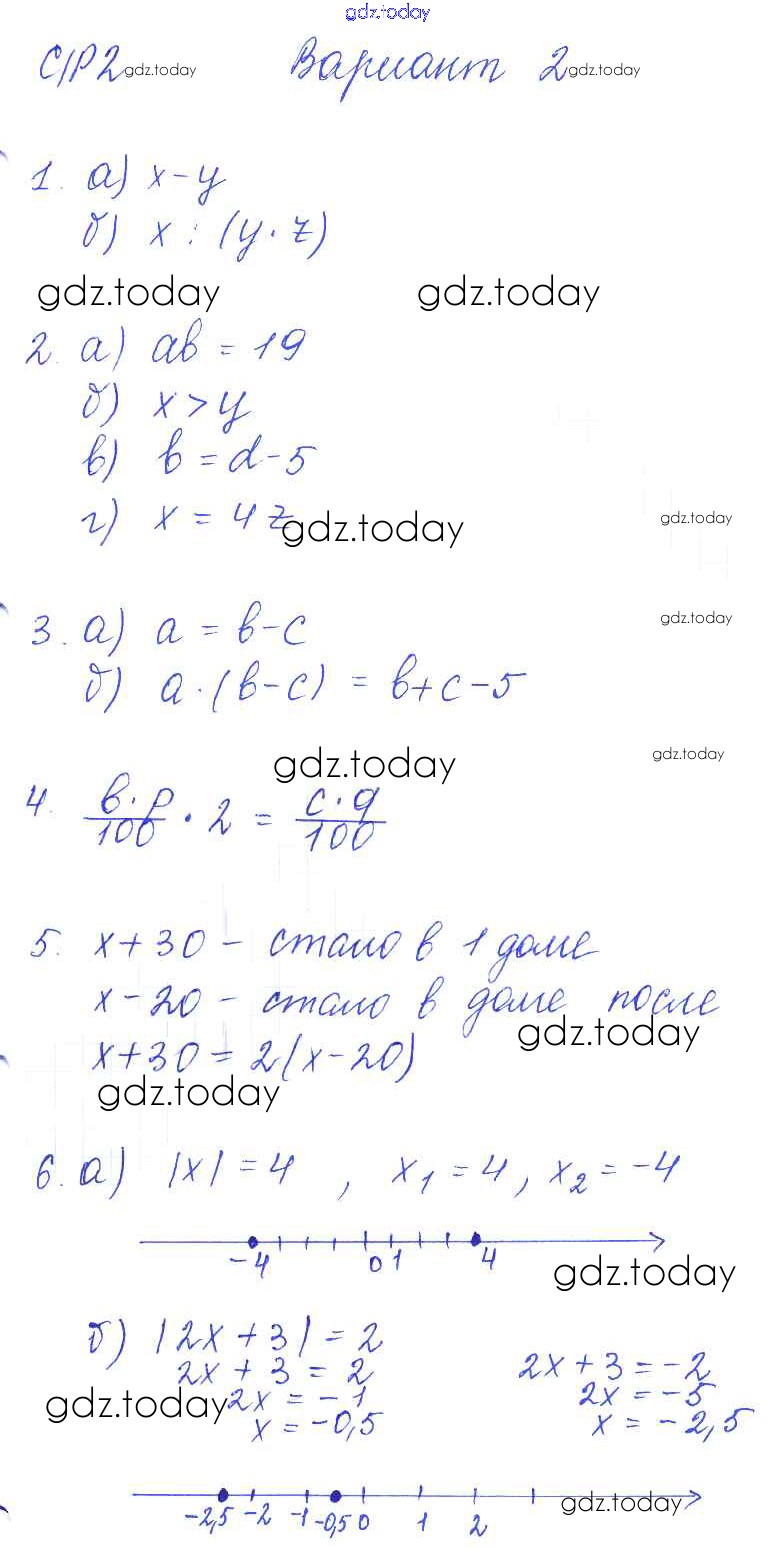 gdz.today
С/Р2 gdz.today Вариант 2 gdz.today
1. а) x-y
б) x : (y · z)
gdz.today gdz.today
2. а) ab = 19
б) x > y
в) b = d-5
г) x = 4z gdz.today gdz.today
3. а) a = b-c gdz.today
б) a · (b-c) = b+c-5
gdz.today gdz.today
4. b·p/100 · 2 = c·q/100
5. x+30 - стало в 1 доме
x-20 - стало в доме после
gdz.today
x+30 = 2(x-20)
gdz.today
6. а) |x| = 4 , x₁ = 4, x₂ = -4
-4 0 1 4
gdz.today
б) |2x + 3| = 2
2x + 3 = 2 2x + 3 = -2
gdz.today 2x = -1 2x = -5
x = -0,5 x = -2,5
gdz.today
-2,5 -2 -1 -0,5 0 1 2